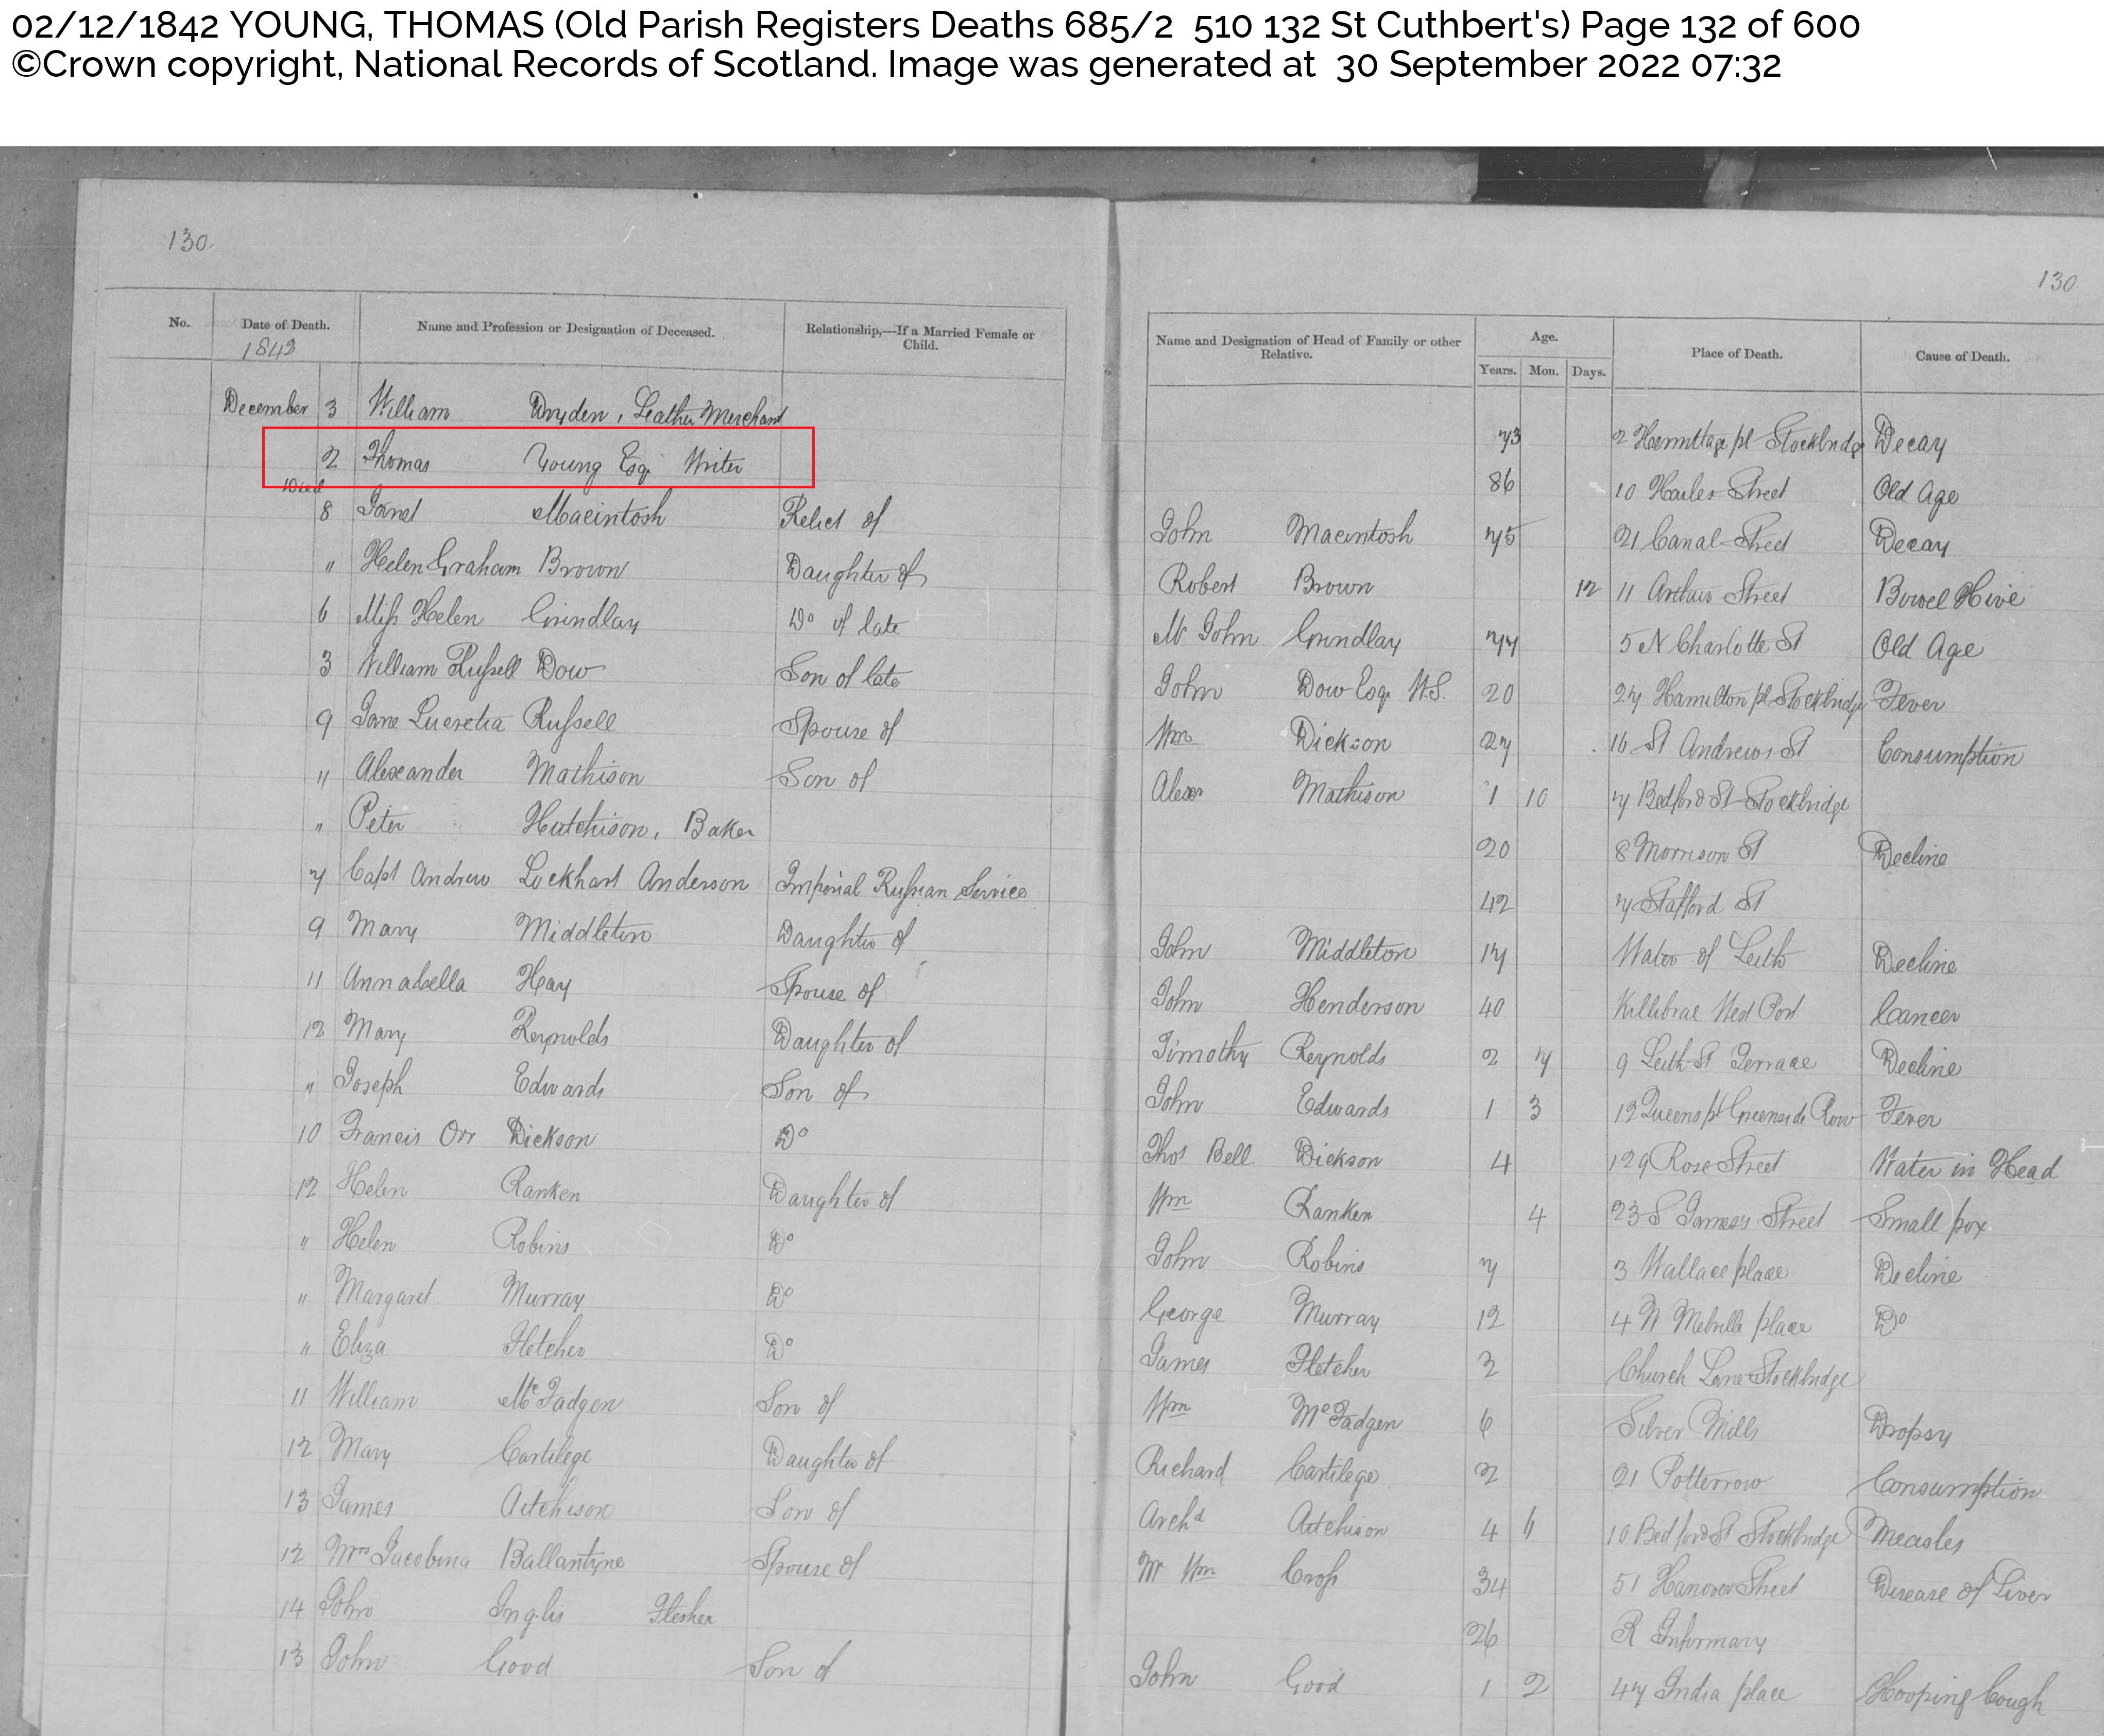 02/12/1842 YOUNG, THOMAS (Old Parish Registers Deaths 685/2 510 132 St Cuthbert's) Page 132 of 600
©Crown copyright, National Records of Scotland. Image was generated at 30 September 2022 07:32
130. 130.
No. Date of Death. Name and Profession or Designation of Deceased. Relationship,—If a Married Female or Child. Name and Designation of Head of Family or other Relative. Age. Years. Mon. Days. Place of Death. Cause of Death.
1842
December 3 William Dryden, Leather Merchant 73 2 Hermitage pl Stockbridge Decay
2 Thomas Young Esqr Writer 86 10 Hailes Street Old Age
Died
8 Janet Macintosh Relict of John Macintosh 75 21 Canal Street Decay
" Helen Graham Brown Daughter of Robert Brown 12 11 Arthur Street Bowel Hive
6 Miss Helen Grindlay Do of late Mr John Grindlay 77 5 N Charlotte St Old Age
3 William Russell Dow Son of late John Dow Esqr W.S. 20 27 Hamilton pl Stockbridge Fever
9 Jane Lucretia Russell Spouse of Wm Dickson 27 16 St Andrews St Consumption
" Alexander Mathison Son of Alexr Mathison 1 10 7 Bedford St Stockbridge
" Peter Hutchison, Baker 20 8 Morrison St Decline
7 Capt Andrew Lockhart Anderson Imperial Russian Service 42 7 Stafford St
9 Mary Middleton Daughter of John Middleton 17 Water of Leith Decline
11 Annabella Hay Spouse of John Henderson 40 Killiebrae West Port Cancer
12 Mary Reynolds Daughter of Timothy Reynolds 2 7 9 Leith St Terrace Decline
" Joseph Edwards Son of John Edwards 1 3 12 Queens pl Greenside Row Fever
10 Francis Orr Dickson Do Thos Bell Dickson 4 129 Rose Street Water in Head
12 Helen Ranken Daughter of Wm Ranken 4 23 S James's Street Small pox
" Helen Robins Do John Robins 7 3 Wallace place Decline
" Margaret Murray Do George Murray 12 4 W Melville place Do
" Eliza Fletcher Do James Fletcher 2 Church Lane Stockbridge
11 William McFadgen Son of Wm McFadgen 6 Silver Mills Dropsy
12 Mary Cartilege Daughter of Richard Cartilege 2 21 Potterrow Consumption
13 James Aitchison Son of Archd Aitchison 4 6 10 Bedford St Stockbridge Measles
12 Mrs Jacobina Ballantyne Spouse of Mr Wm Cross 34 51 Hanover Street Disease of Liver
14 John Inglis Flesher 26 R Infirmary
13 John Good Son of John Good 1 2 47 India place Hooping Cough